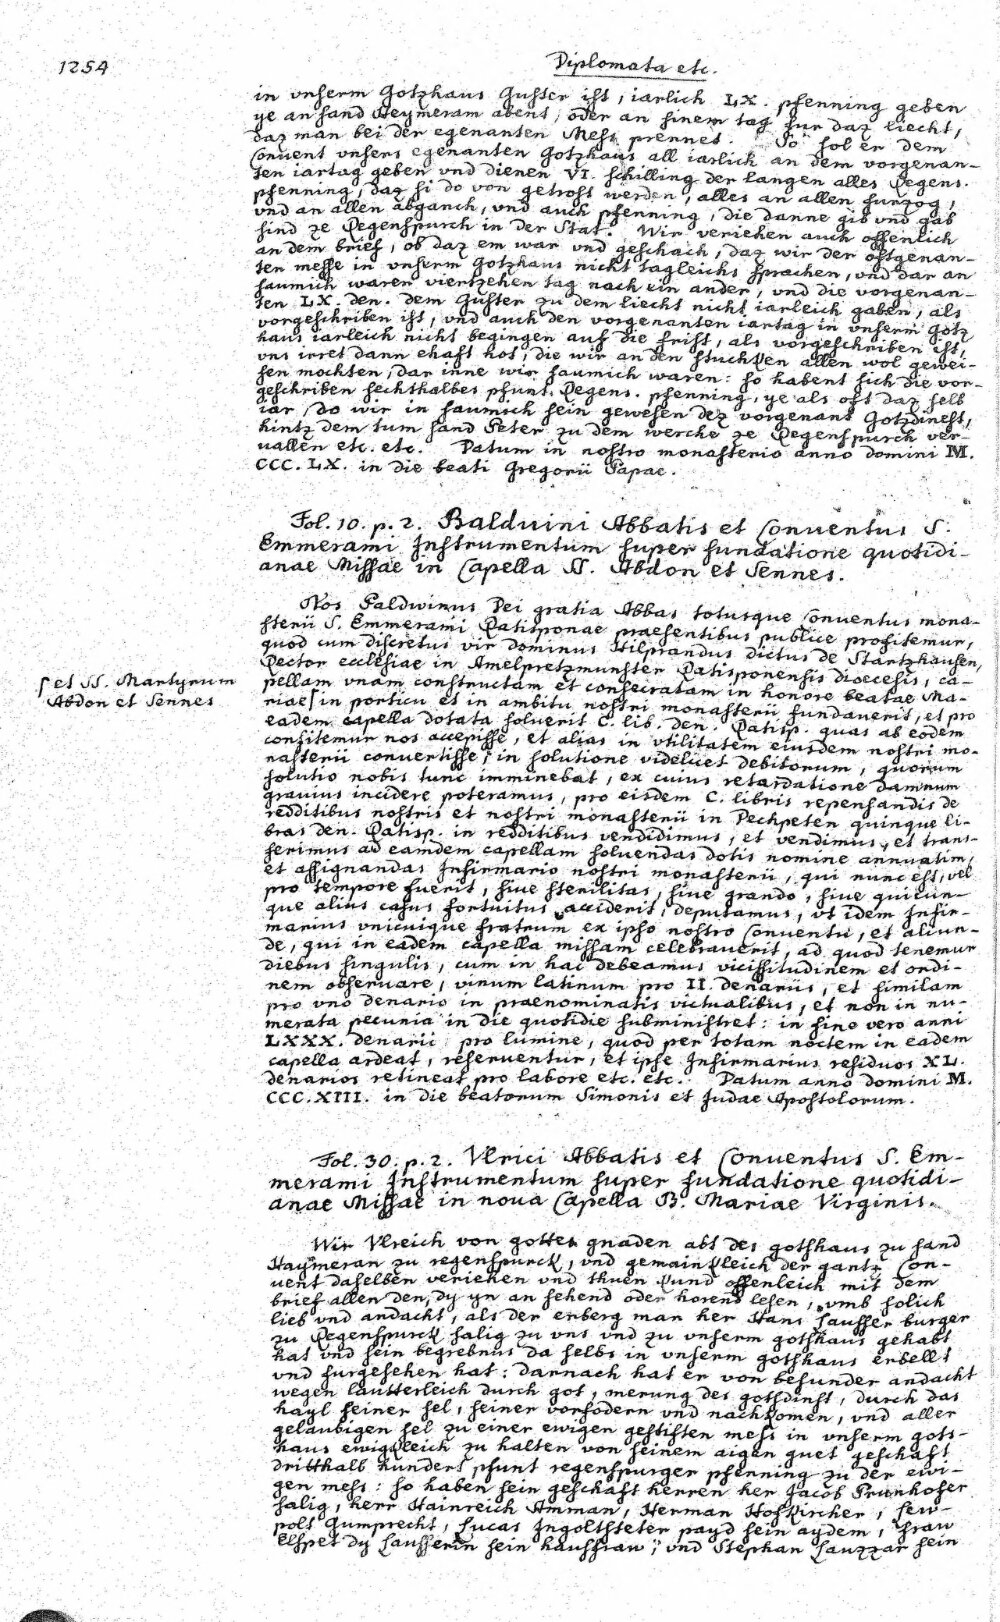 1254
Diplomata etc.
in vnserm Gotzhaus Guster ist, iarlich LX. pfenning geben
ye an sand Heymeram abent, oder an sinem tag fur daz liecht,
daz man bei der egenanten Mess prennet. So sol er dem
Conuent vnsers egenanten Gotzhaus all iarlich an dem vorgenan-
ten iartag geben vnd dienen VI. schilling der langen alles Regens.
pfenning, daz si do von getrost werden, alles an allen furzog,
vnd an allen abganch, vnd auch pfenning, die danne gib vnd gab
sind ze Regenspurch in der Stat. Wir veriehen auch offenlich
an dem brief, ob daz em war vnd geschach, daz wir der oftgenan-
ten messe in vnserm Gotzhaus nicht tagleichs sprachen, vnd dar an
saumich waren viertzehen tag nach ein ander, vnd die vorgenan-
ten LX. den. dem Guster zu dem liecht nicht iarleich gaben, als
vorgeschriben ist, vnd auch den vorgenanten iartag in vnserm Gotz
haus iarleich nicht begingen auf die frist, als vorgeschriben ist,
vns irret dann ehaft not, die wir an den stuchken allen wol gewei-
sen mochten, dar inne wir saumich waren: so habent sich die vor-
geschriben sechthalbes pfunt Regens. pfenning, ye als oft daz selb
iar, do wir in saumich sein gewesen dez vorgenant Gotzdinest,
hintz dem tum sand Peter zu dem werche ze Regenspurch ver-
uallen etc. etc. Datum in nostro monasterio anno domini M.
CCC. LX. in die beati Gregorii Papae.
Fol. 10. p. 2. Balduini Abbatis et Conuentus S.
Emmerami Instrumentum super fundatione quotidi-
anae Missae in Capella SS. Abdon et Sennes.
Nos Paldwinus Dei gratia Abbas totusque Conuentus mona-
sterii S. Emmerami Ratisponae praesentibus publice profitemur,
quod cum discretus vir dominus Hilprandus dictus de Startzhausen,
Rector ecclesiae in Amelpretzmunster Ratisponensis dioecesis, ca-
pellam vnam constructam et consecratam in honore beatae Ma-
riae ſ in porticu et in ambitu nostri monasterii fundauerit, et pro
ſ et SS. Martyrum
Abdon et Sennes
eadem capella dotata soluerit C. lib. den. Ratisp. quas ab eodem
confitemur nos accepisse, et alias in vtilitatem eiusdem nostri mo-
nasterii conuertisse, in solutione videlicet debitorum, quorum
solutio nobis tunc imminebat, ex cuius retardatione damnum
grauius incidere poteramus, pro eisdem C. libris repensandis de
redditibus nostris et nostri monasterii in Pechpeten quinque li-
bras den. Ratisp. in redditibus vendidimus, et vendimus, et trans-
ferimus ad eamdem capellam soluendas dotis nomine annuatim,
et assignandas Infirmario nostri monasterii, qui nunc est, vel
pro tempore fuerit, siue sterilitas, siue grando, siue quicun-
que alius casus fortuitus acciderit, deputamus, vt idem Infir-
marius vnicuique fratrum ex ipso nostro Conuentu, et aliun-
de, qui in eadem capella missam celebrauerit, ad quod tenemur
diebus singulis, cum in hac debeamus vicissitudinem et ordi-
nem obseruare, vinum latinum pro II. denariis, et similam
pro vno denario in praenominatis victualibus, et non in nu-
merata pecunia in die quotidie subministret: in fine vero anni
LXXX. denarii pro lumine, quod per totam noctem in eadem
capella ardeat, reseruentur, et ipse Infirmarius residuos XL.
denarios retineat pro labore etc. etc. Datum anno domini M.
CCC. XIII. in die beatorum Simonis et Judae Apostolorum.
Fol. 30. p. 2. Vlrici Abbatis et Conuentus S. Em-
merami Instrumentum super fundatione quotidi-
anae Missae in noua Capella B. Mariae Virginis.
Wir Vlreich von gottes gnaden abt des gotshaus zu sand
Haymeran zu regenspurck, vnd gemainkleich der gantz Con-
uent daselben veriehen vnd thuen kund offenleich mit dem
brief allen den, dy yn an sehend oder horend lesen, vmb solich
lieb vnd andacht, als der erberg man her Hans Lausser burger
zu Regenspurck salig zu vns vnd zu vnserm gotshaus gehabt
hat vnd sein begrebnus da selbs in vnserm gotshaus erbellt
vnd fursehen hat: darnach hat er von besunder andacht
wegen lautterleich durch got, merung des gotsdinst, durch das
hayl seiner sel, seiner vorfodern vnd nachkomen, vnd aller
gelaubigen sel zu einer ewigen gestiften mess in vnserm gots-
haus ewigkleich zu halten von seinem aigen guet geschaft
dritthalb hundert pfunt regenspurger pfenning zu der ewi-
gen mess: so haben sein geschaft herren her Jacob Prunhofer
salig, herr Hainreich Amman, Herman Hofkircher, Lew-
polt Gumprecht, Lucas Ingolsteter payd sein aydem, fraw
Elspet dy Lausserin sein hausfraw, vnd Stephan Lauzzar sein